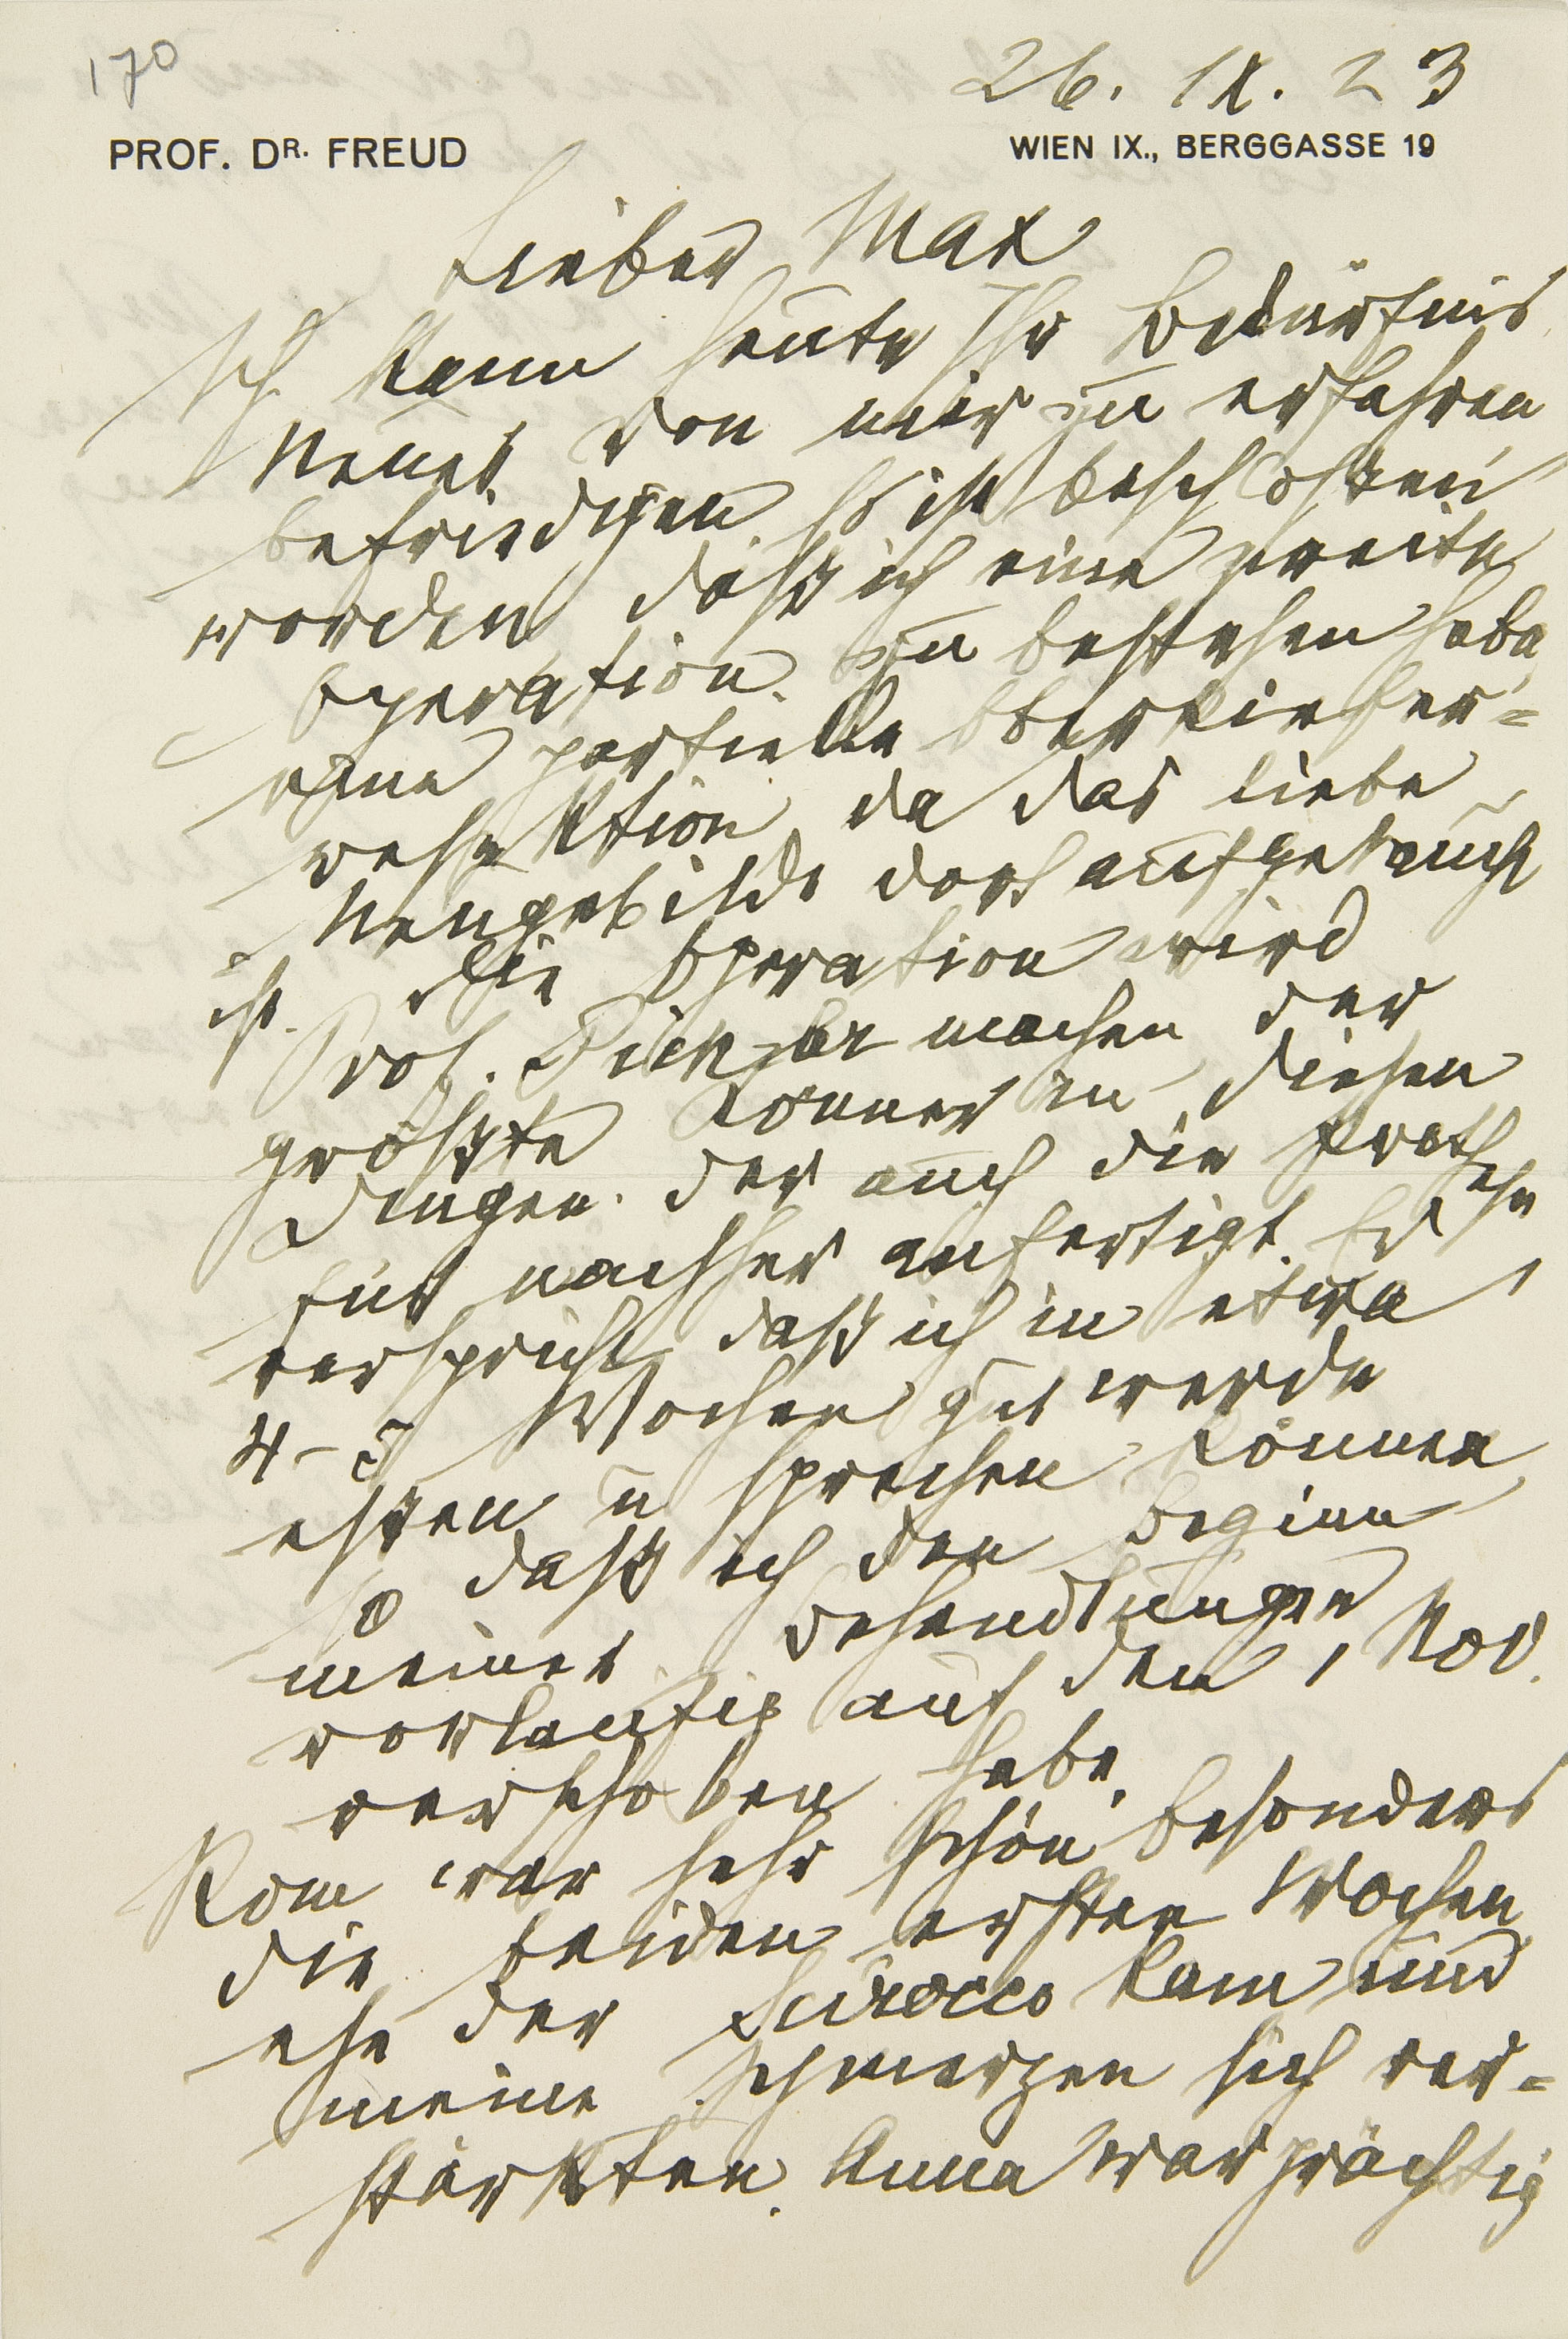 170
26. IX. 23
PROF. DR. FREUD
WIEN IX., BERGGASSE 19
Lieber Max
Ich kann heute Ihr Bedürfnis
Neues von mir zu erfahren
befriedigen. Es ist beschlossen
worden, daß ich eine zweite
Operation zu bestehen habe,
eine partielle Oberkiefer=
resektion, da das liebe
Neugebilde dort aufgetaucht
ist. Die Operation wird
Prof. Pichler machen, der
größte Könner in diesen
Dingen, der auch die Prothese
für nachher anfertigt. Er
verspricht, daß ich in etwa
4-5 Wochen gut werde
essen u sprechen können,
so daß ich den Beginn
meiner Behandlungen
vorläufig auf den 1 Nov.
verschoben habe.
Rom war sehr schön, besonders
die beiden ersten Wochen,
ehe der Scirocco kam und
meine Schmerzen sich ver=
stärkten. Anna war prächtig